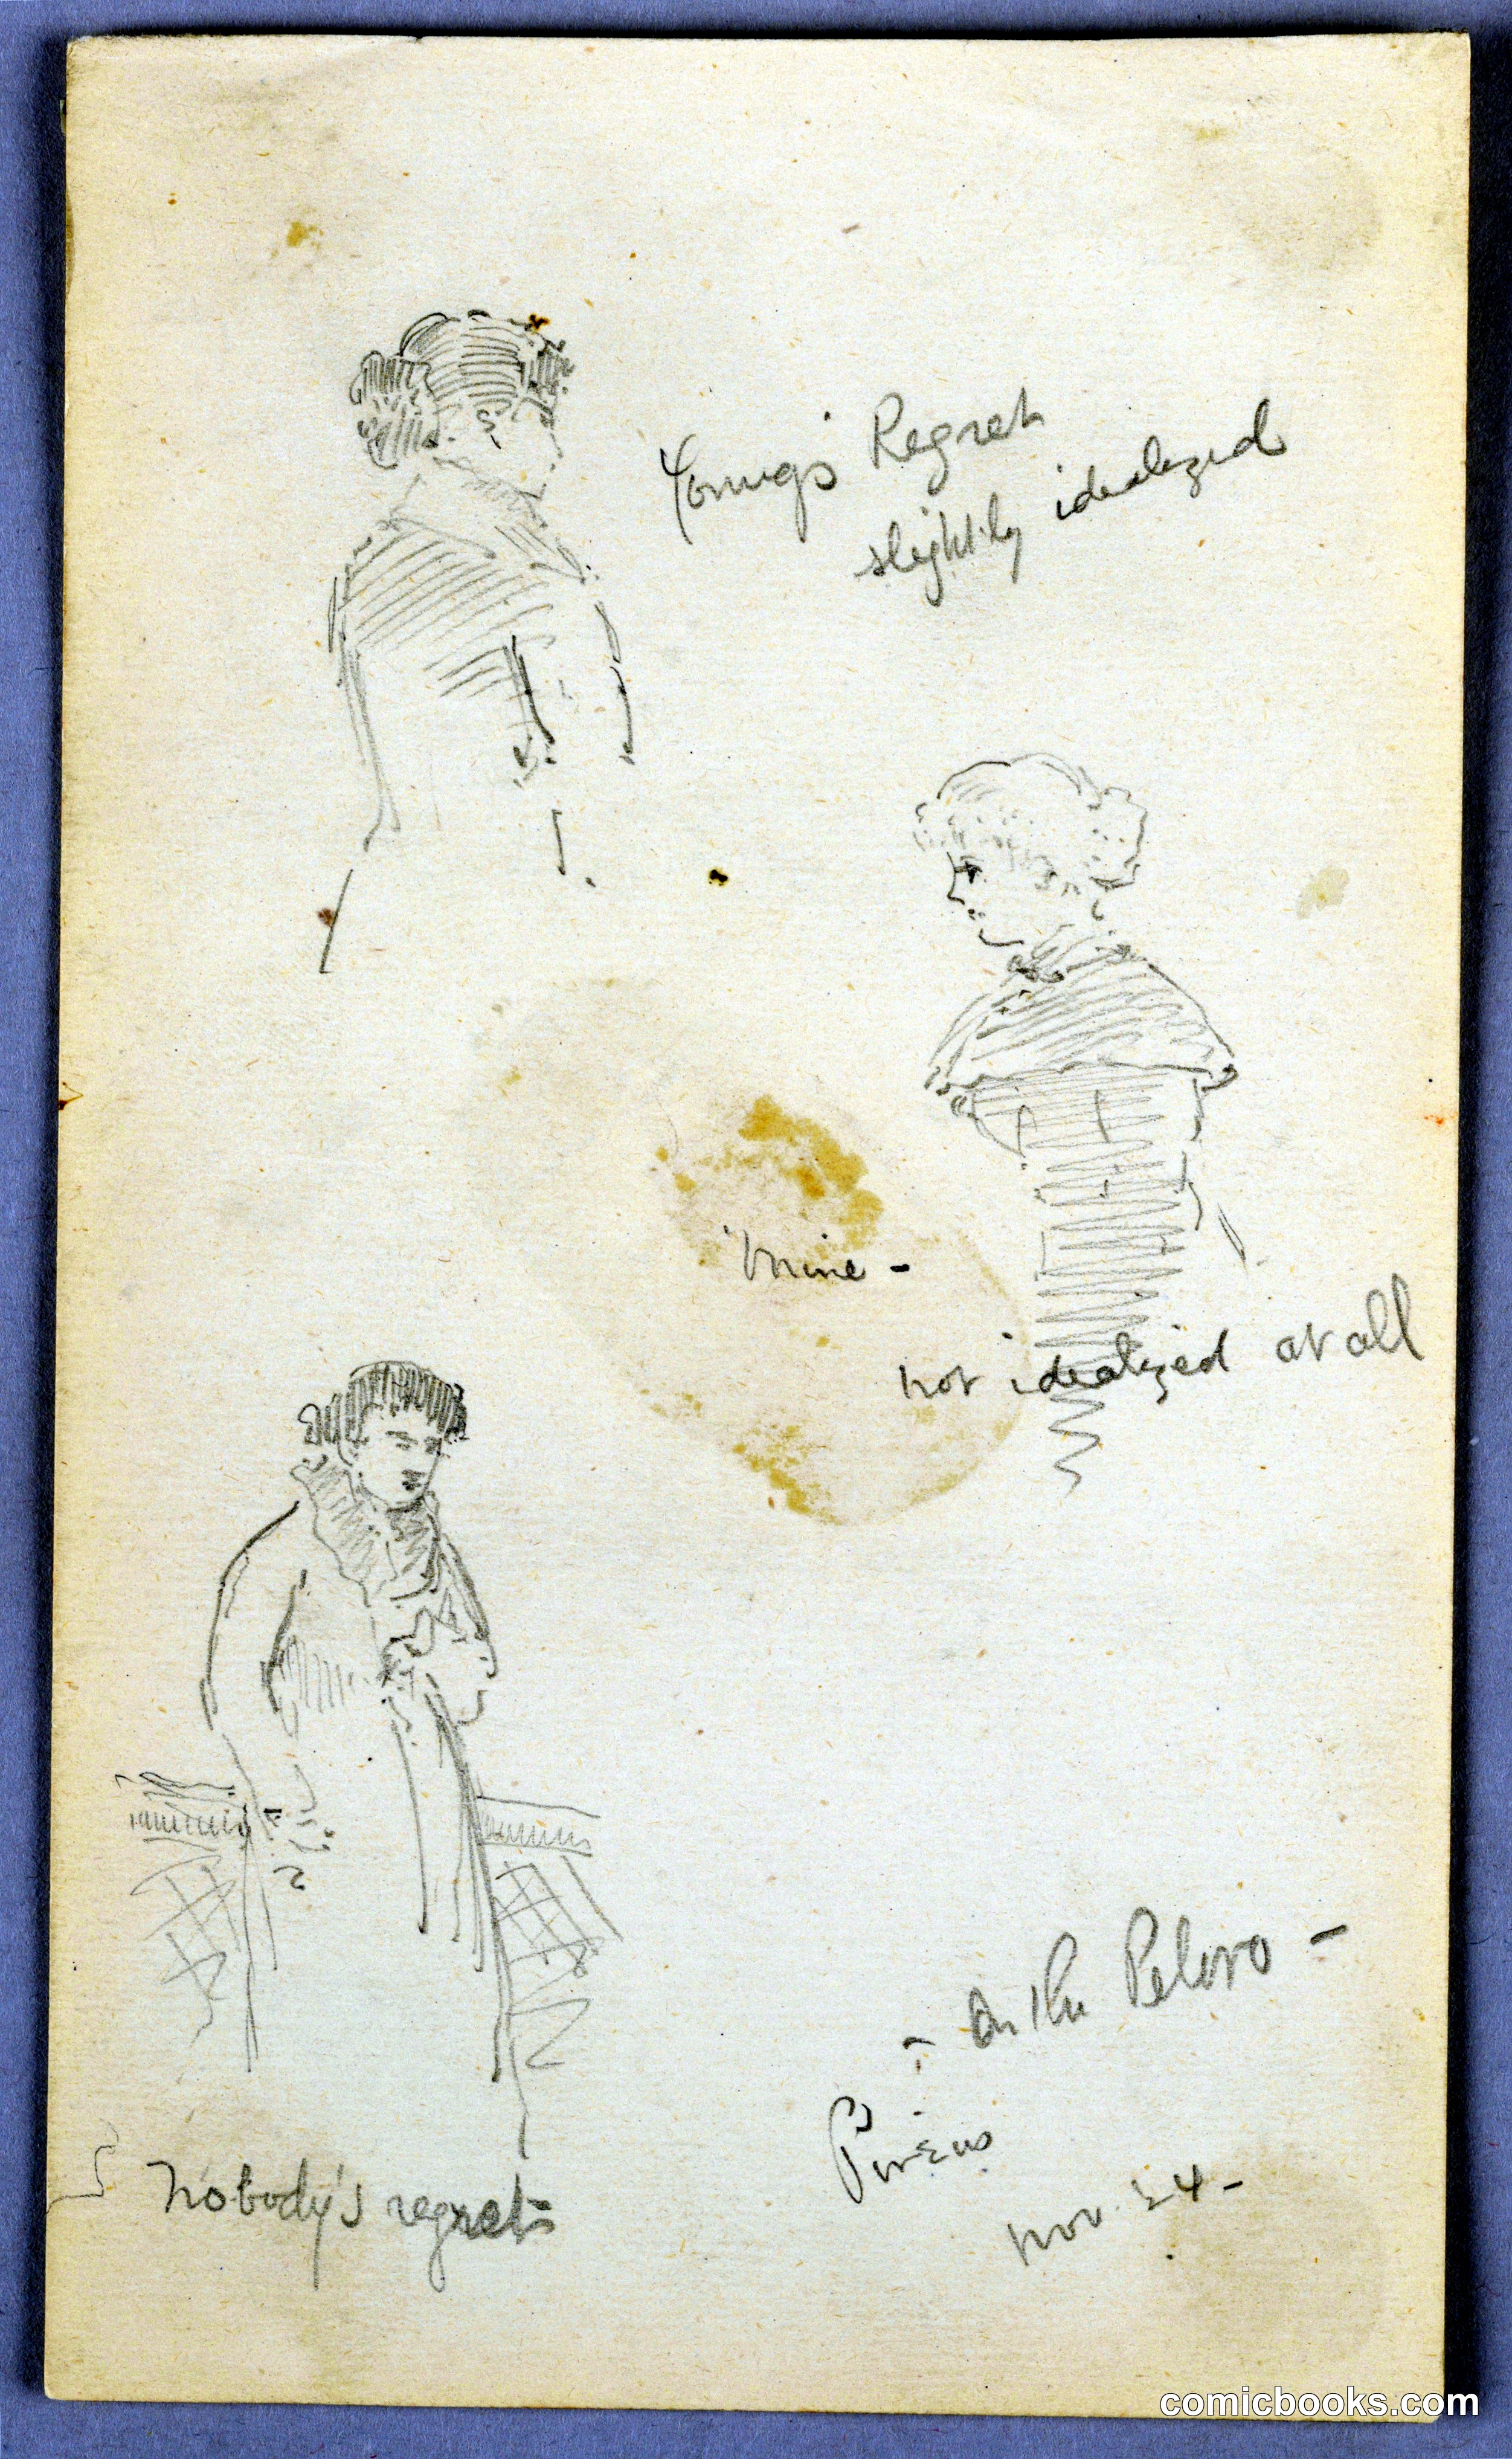 Young's Regret
slightly idealized
Mine -
not idealized at all
- On the Peloro -
Piraeus
Nov. 24-
Nobody's regret-
comicbooks.com